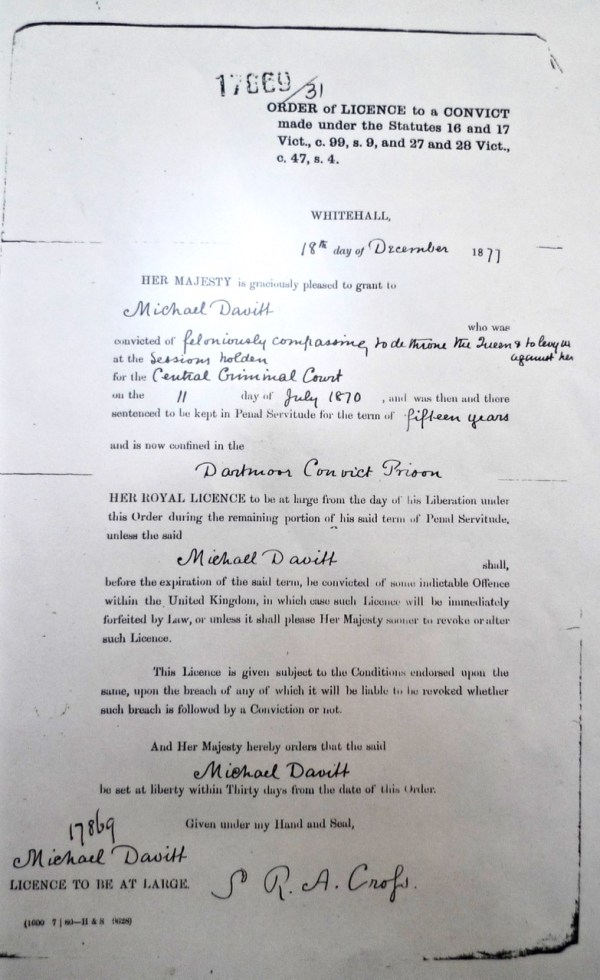 17869/31
ORDER of LICENCE to a CONVICT
made under the Statutes 16 and 17
Vict., c. 99, s. 9, and 27 and 28 Vict.,
c. 47, s. 4.
WHITEHALL,
18th day of December 1877
HER MAJESTY is graciously pleased to grant to
Michael Davitt
who was
convicted of feloniously compassing to dethrone the Queen & to levy war
against her
at the Sessions holden
for the Central Criminal Court
on the 11 day of July 1870 , and was then and there
sentenced to be kept in Penal Servitude for the term of fifteen years
and is now confined in the
Dartmoor Convict Prison
HER ROYAL LICENCE to be at large from the day of his Liberation under
this Order during the remaining portion of his said term of Penal Servitude,
unless the said
Michael Davitt shall,
before the expiration of the said term, be convicted of some indictable Offence
within the United Kingdom, in which case such Licence will be immediately
forfeited by Law, or unless it shall please Her Majesty sooner to revoke or alter
such Licence.
This Licence is given subject to the Conditions endorsed upon the
same, upon the breach of any of which it will be liable to be revoked whether
such breach is followed by a Conviction or not.
And Her Majesty hereby orders that the said
Michael Davitt
be set at liberty within Thirty days from the date of this Order.
Given under my Hand and Seal,
17869
Michael Davitt
LICENCE TO BE AT LARGE.
R. A. Cross.
(1000 7 | 80—H & S